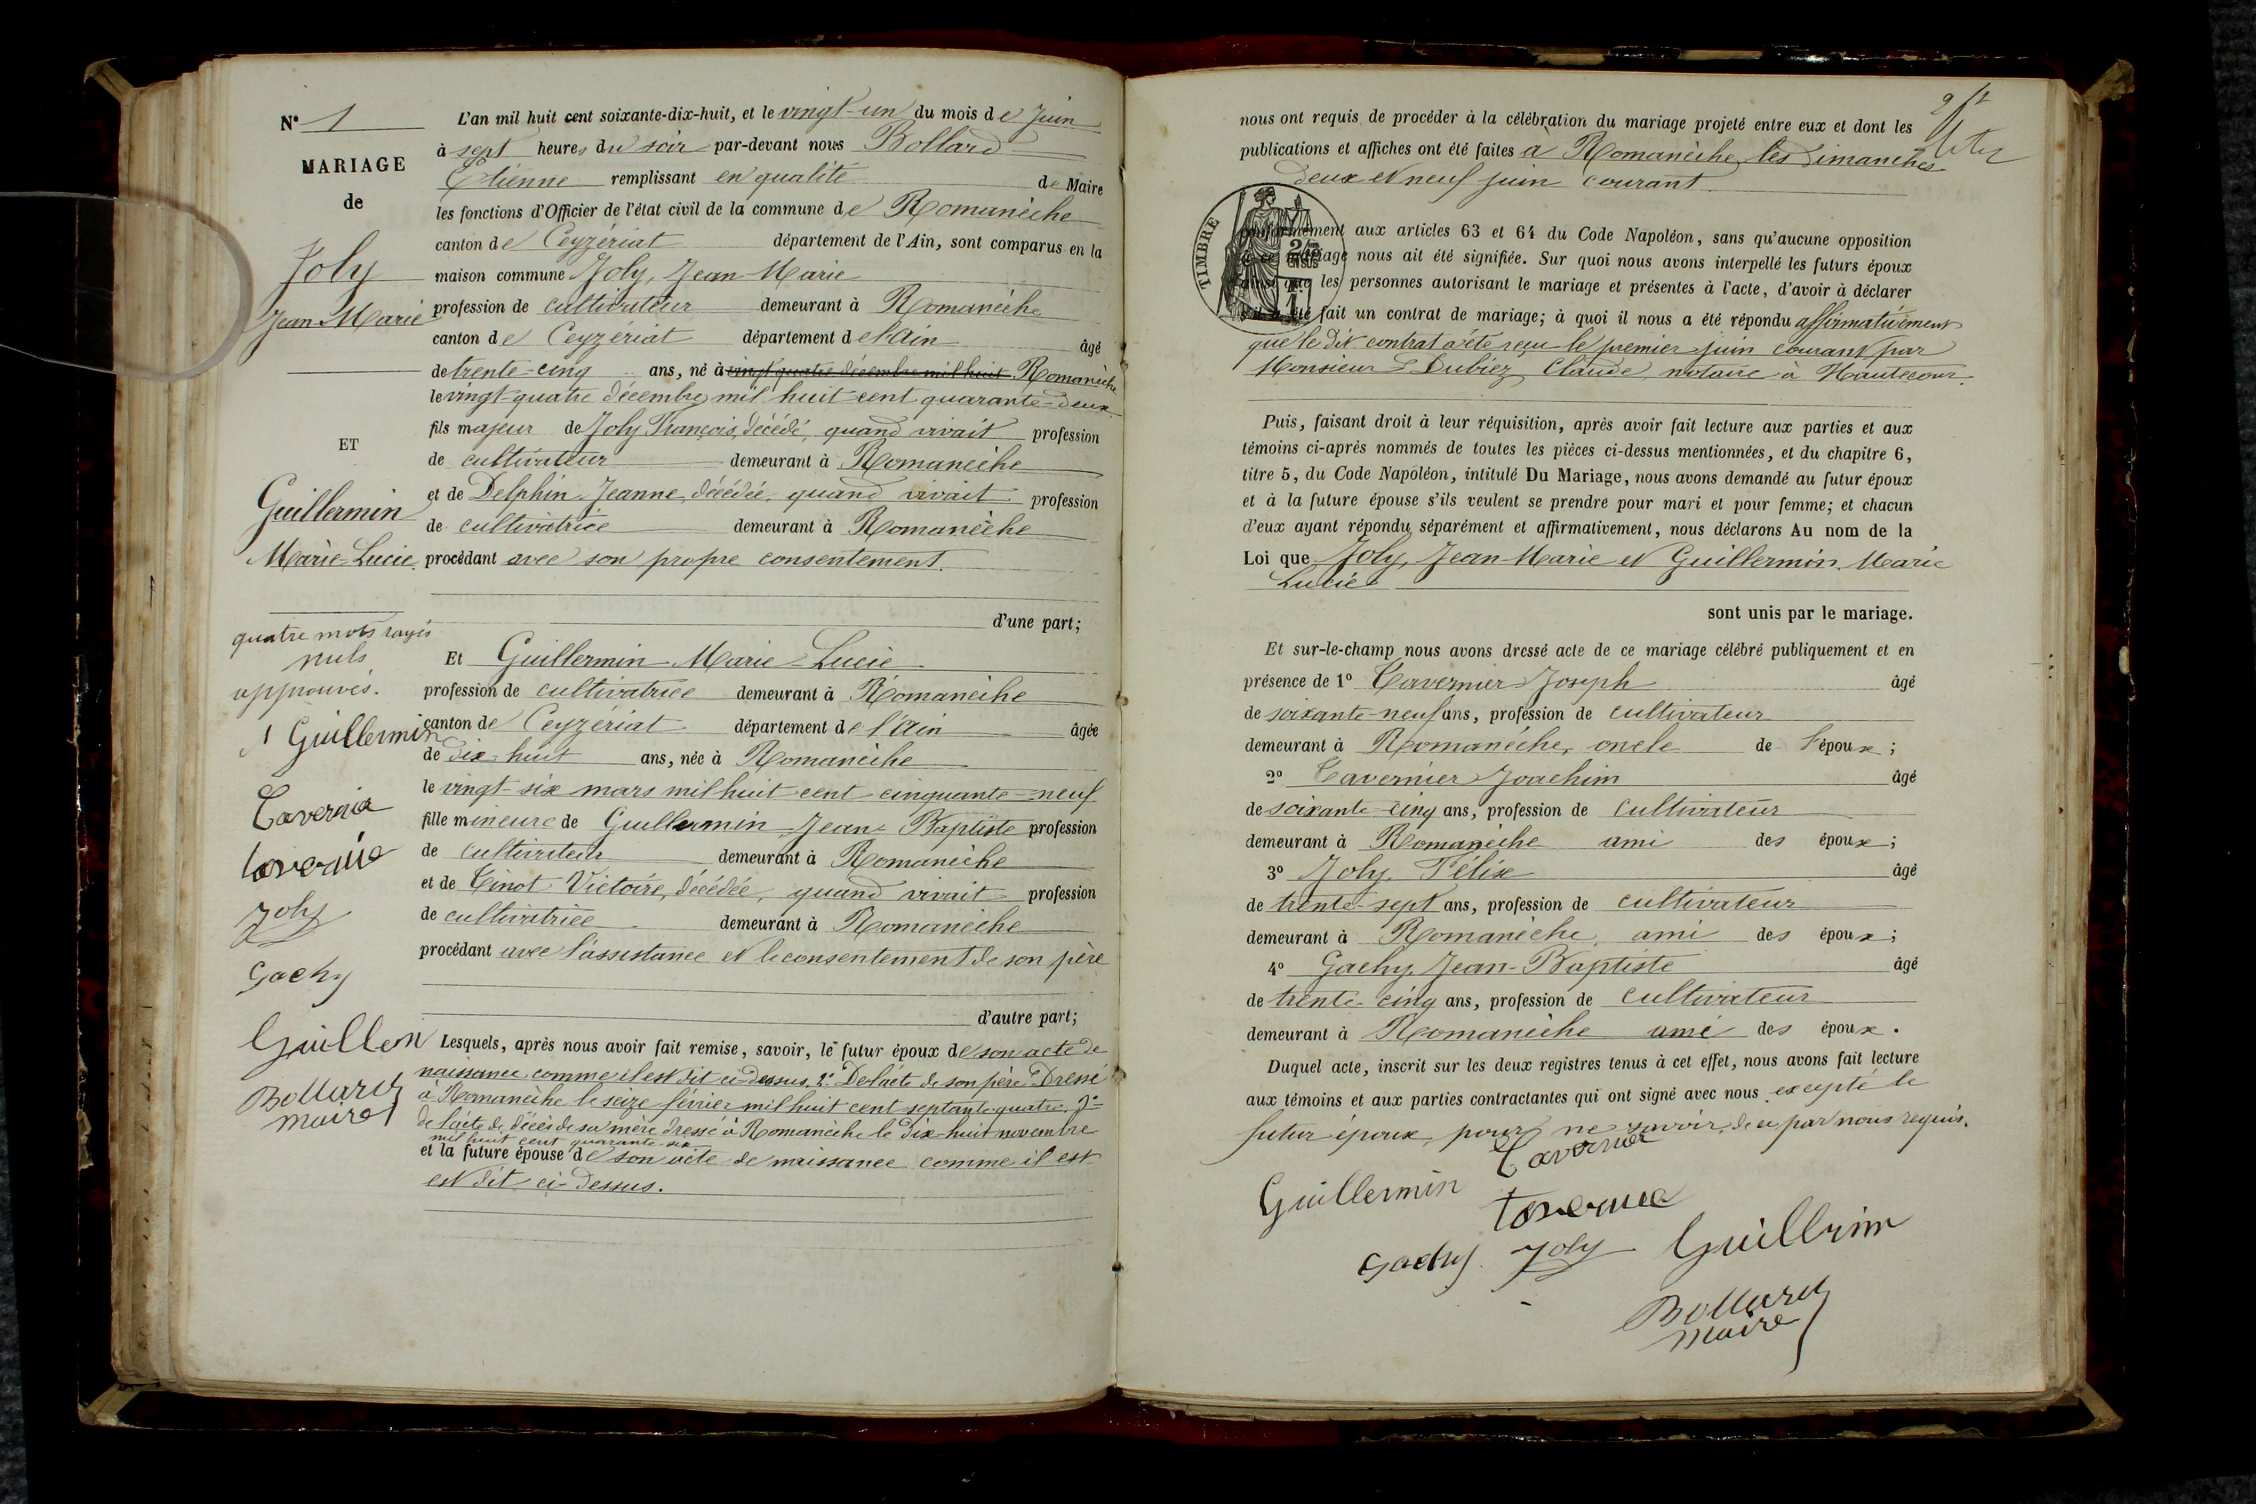 N° 1
MARIAGE
de
Joly
Jean-Marie
ET
Guillermin
Marie-Lucie.
quatre mots rayés
nuls
approuvés.
Guillermin
Tavernier
Joly
Gachy
Bollard
maire
L'an mil huit cent soixante-dix-huit, et le vingt-un du mois de Juin
à sept heures du soir par-devant nous Bollard
Etienne remplissant en qualité de Maire
les fonctions d'Officier de l'état civil de la commune de Romanèche
canton de Ceyzériat département de l'Ain, sont comparus en la
maison commune Joly, Jean-Marie
profession de cultivateur demeurant à Romanèche
canton de Ceyzériat département de l'Ain âgé
de trente-cinq ans, né à vingt quatre décembre mil huit Romanèche
le vingt-quatre décembre mil huit cent quarante-deux
fils majeur de Joly François, décédé, quand vivait profession
de cultivateur demeurant à Romanèche
et de Delphin Jeanne, décédée, quand vivait profession
de cultivatrice demeurant à Romanèche
procédant avec son propre consentement.
d'une part;
Et Guillermin Marie-Lucie
profession de cultivatrice demeurant à Romanèche
canton de Ceyzériat département de l'Ain âgée
de dix-huit ans, née à Romanèche
le vingt-six mars mil huit cent cinquante-neuf
fille mineure de Guillermin Jean-Baptiste profession
de cultivateur demeurant à Romanèche
et de Tinot Victoire, décédée, quand vivait profession
de cultivatrice demeurant à Romanèche
procédant avec l'assistance et le consentement de son père
d'autre part;
Lesquels, après nous avoir fait remise, savoir, le futur époux de son acte de
naissance comme il est dit ci-dessus. 2° De l'acte de son père Dressé
à Romanèche le seize février mil huit cent septante quatre. 3°
de l'acte de décès de sa mère dressé à Romanèche le dix-huit novembre
mil huit cent quarante-six
et la future épouse de son acte de naissance comme il est
est dit ci-dessus.
nous ont requis de procéder à la célébration du mariage projeté entre eux et dont les
publications et affiches ont été faites à Romanèche les Dimanches
deux et neuf juin courant.
TIMBRE
conformément aux articles 63 et 64 du Code Napoléon, sans qu'aucune opposition
mariage nous ait été signifiée. Sur quoi nous avons interpellé les futurs époux
ainsi que les personnes autorisant le mariage et présentes à l'acte, d'avoir à déclarer
s'il a été fait un contrat de mariage; à quoi il nous a été répondu affirmativement
que le dit contrat a été reçu le premier juin courant par
Monsieur Dubiez Claude, notaire à Hautecour.
Puis, faisant droit à leur réquisition, après avoir fait lecture aux parties et aux
témoins ci-après nommés de toutes les pièces ci-dessus mentionnées, et du chapitre 6,
titre 5, du Code Napoléon, intitulé Du Mariage, nous avons demandé au futur époux
et à la future épouse s'ils veulent se prendre pour mari et pour femme; et chacun
d'eux ayant répondu séparément et affirmativement, nous déclarons Au nom de la
Loi que Joly, Jean-Marie et Guillermin Marie
Lucie
sont unis par le mariage.
Et sur-le-champ nous avons dressé acte de ce mariage célébré publiquement et en
présence de 1° Tavernier Joseph âgé
de soixante-neuf ans, profession de cultivateur
demeurant à Romanèche, oncle de l'époux;
2° Tavernier Joachim âgé
de soixante-cinq ans, profession de cultivateur
demeurant à Romanèche ami des époux;
3° Joly Félix âgé
de trente-sept ans, profession de cultivateur
demeurant à Romanèche, ami des époux;
4° Gachy Jean-Baptiste âgé
de trente-cinq ans, profession de cultivateur
demeurant à Romanèche ami des époux.
Duquel acte, inscrit sur les deux registres tenus à cet effet, nous avons fait lecture
aux témoins et aux parties contractantes qui ont signé avec nous excepté le
futur époux, pour ne savoir, de ce par nous requis.
Tavernier
Guillermin
Gachy Joly
Bollard
maire